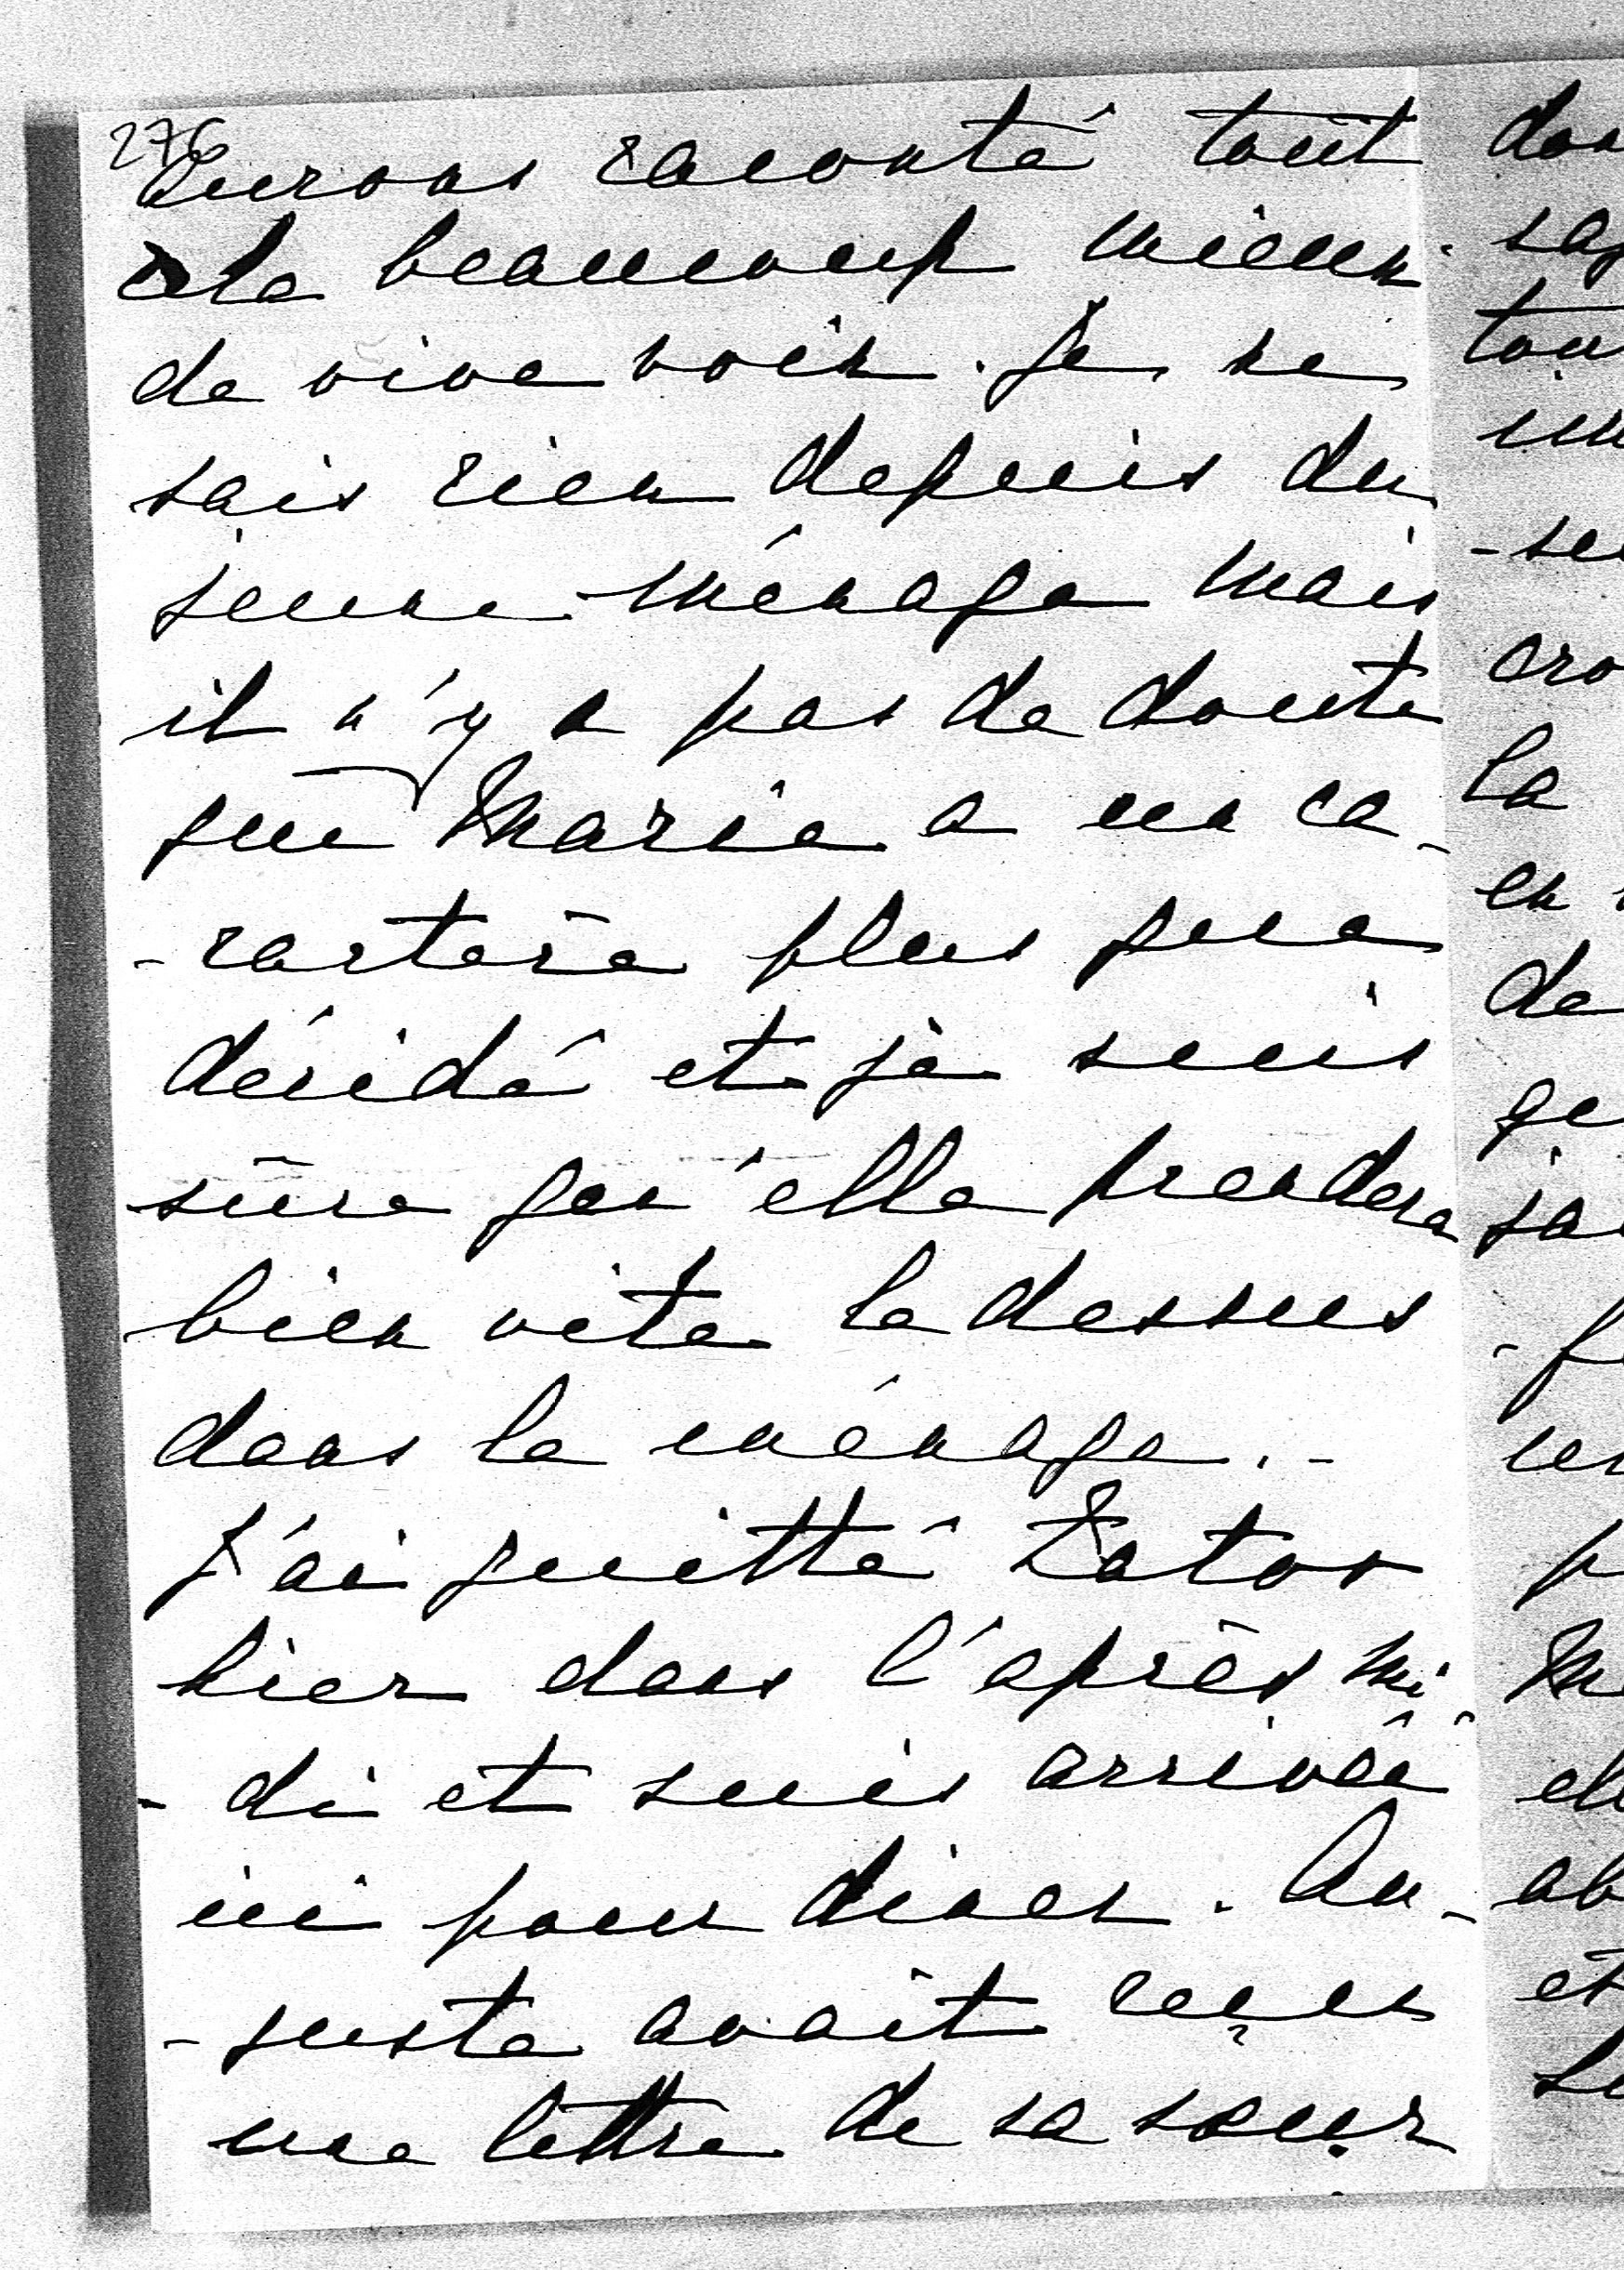 276
aurons raconté tout
cela beaucoup mieux
de vive voix. Je ne
sais rien depuis du
jeune ménage mais
il n'y a pas de doute
que Marie a un ca-
-ractère plus que
décidé et je suis
sûre qu'elle prendera
bien vite le dessus
dans le ménage. -
J'ai quitté Tator
hier dans l'après mi-
-di et suis arrivée
ici pour diner. Au-
-guste avait reçu
une lettre de sa soeur